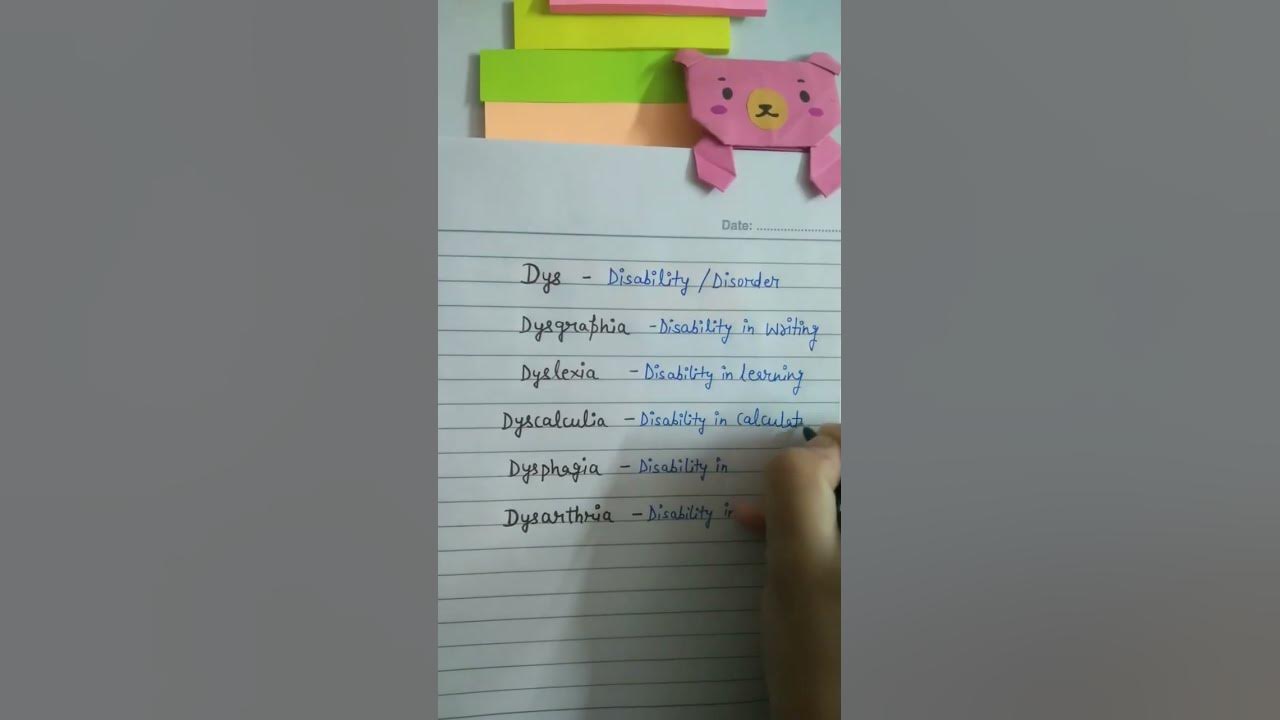 Date: ........................
Dys - Disability / Disorder
Dysgraphia - Disability in writing
Dyslexia - Disability in learning
Dyscalculia - Disability in Calculat
Dysphagia - Disability in
Dysarthria - Disability in